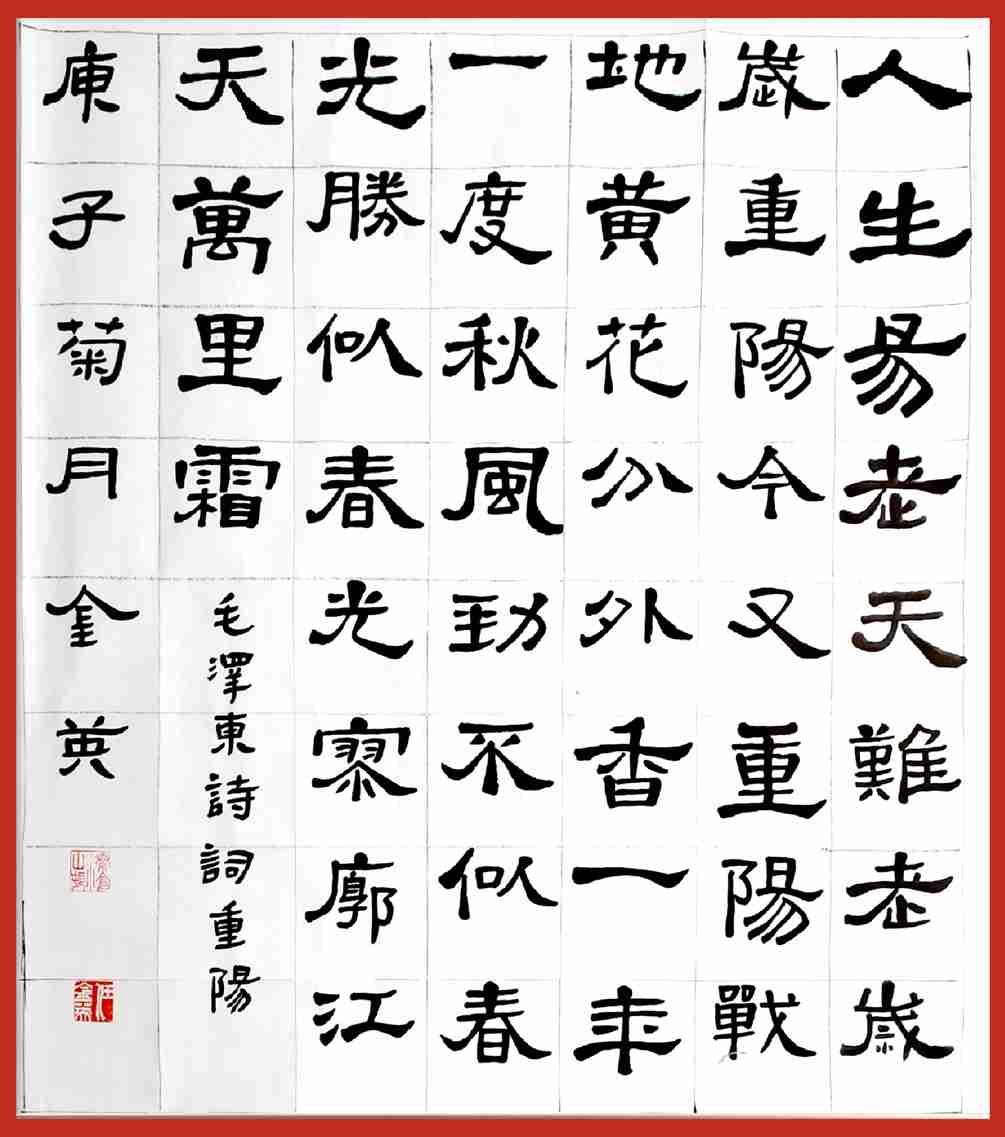 人生易老天難老歲
歲重陽今又重陽戰
地黃花分外香一年
一度秋風勁不似春
光勝似春光寥廓江
天萬里霜
毛澤東詩詞重陽
庚子菊月金英